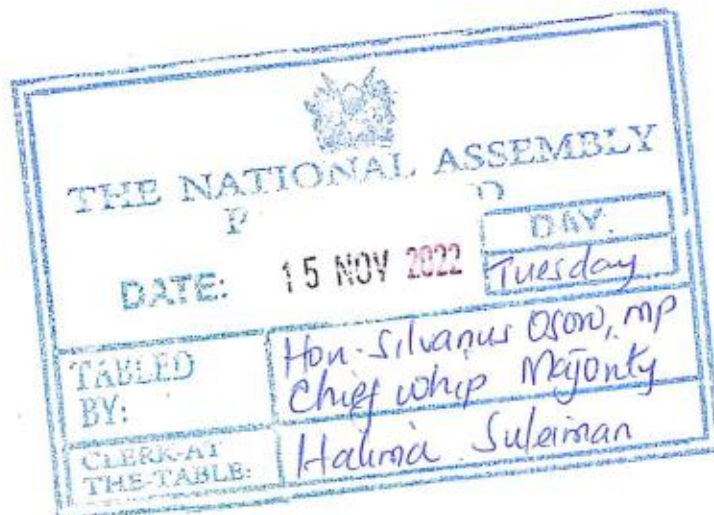 THE NATIONAL ASSEMBLY
P D
DATE: 15 NOV 2022
DAY:
Tuesday
TABLED BY:
Hon. Silvanus Osoro, MP
Chief Whip Majority
CLERK-AT THE-TABLE:
Halima Suleiman